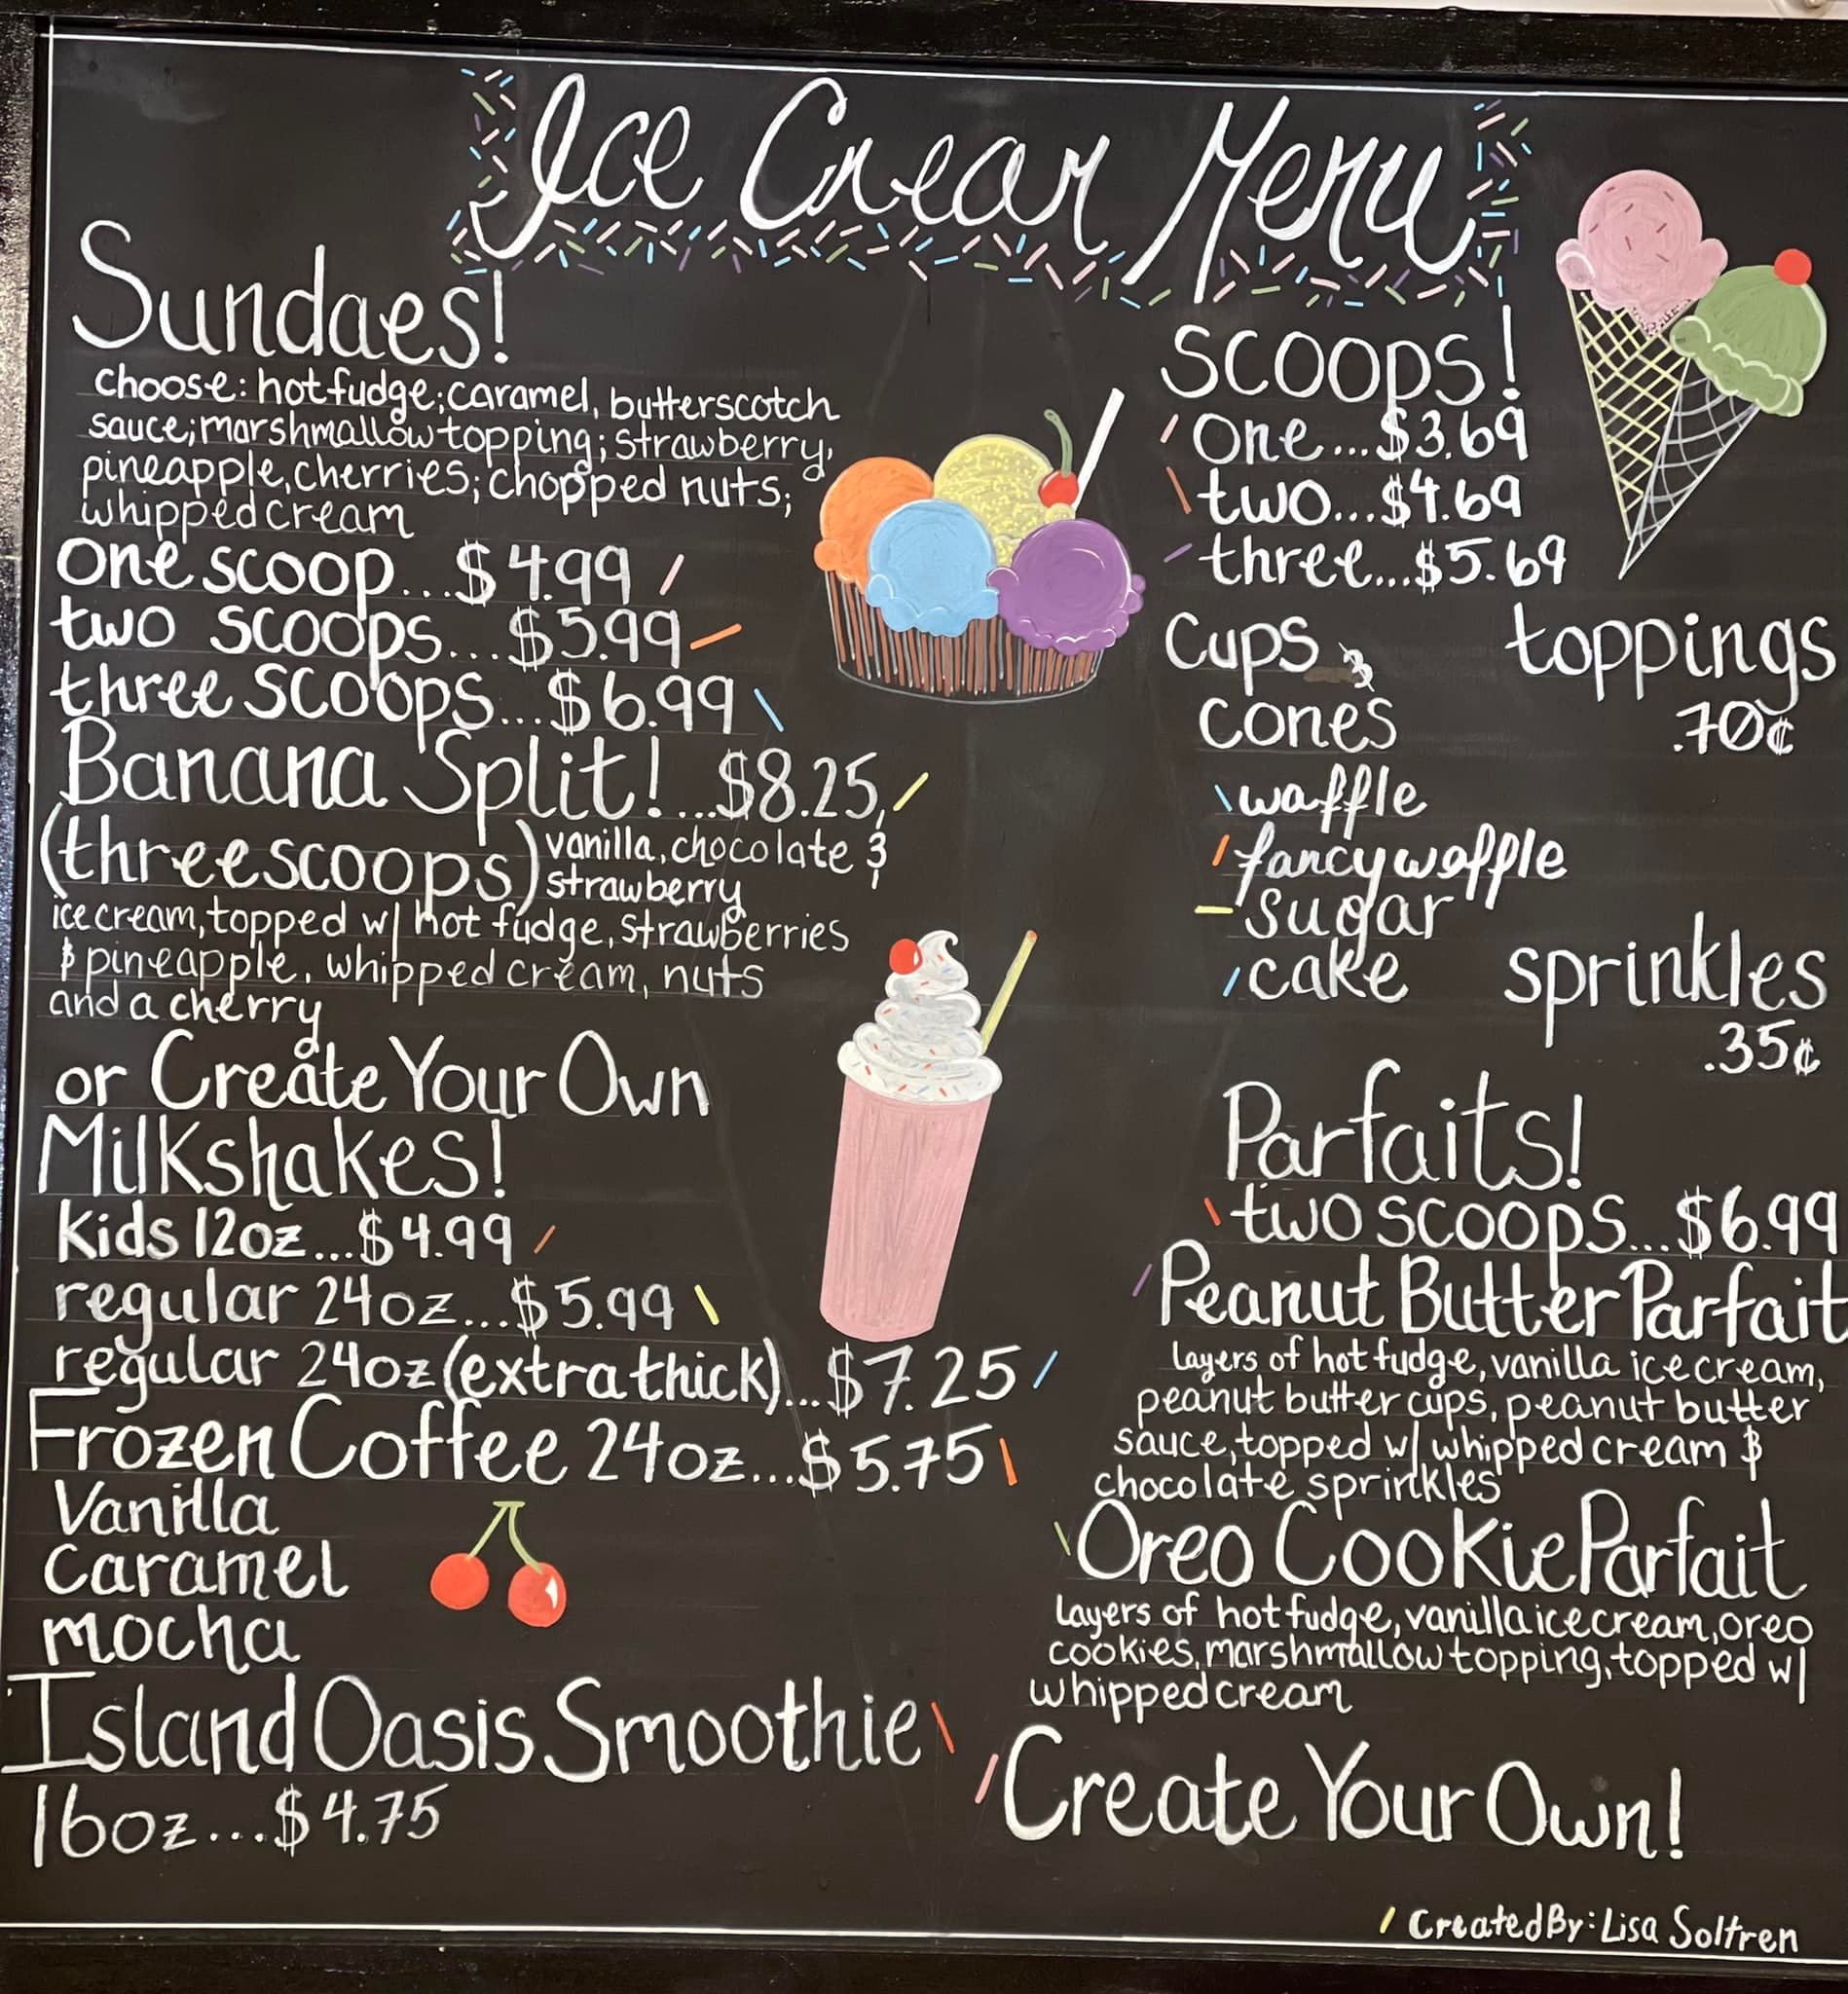 Ice Cream Menu
Sundaes!
choose: hot fudge; caramel, butterscotch
sauce; marshmallow topping; strawberry,
pineapple, cherries; chopped nuts;
whipped cream
one scoop...$4.99
two scoops...$5.99
three scoops...$6.99
Banana Split!...$8.25,
(three scoops) vanilla, chocolate &
strawberry
ice cream, topped w/ hot fudge, strawberries
& pineapple, whipped cream, nuts
and a cherry
or Create Your Own
Milkshakes!
Kids 12oz...$4.99
regular 24oz...$5.99
regular 24oz (extra thick)...$7.25
Frozen Coffee 24oz...$5.75
Vanilla
caramel
mocha
Island Oasis Smoothie
16oz...$4.75
SCOOPS!
one...$3.69
two...$4.69
three...$5.69
Cups &
cones
waffle
fancy waffle
sugar
cake
toppings
.70¢
sprinkles
.35¢
Parfaits!
two scoops...$6.99
Peanut Butter Parfait
layers of hot fudge, vanilla ice cream,
peanut butter cups, peanut butter
sauce, topped w/ whipped cream &
chocolate sprinkles
Oreo Cookie Parfait
layers of hot fudge, vanilla ice cream, oreo
cookies, marshmallow topping, topped w/
whipped cream
Create Your Own!
Created By: Lisa Soltren